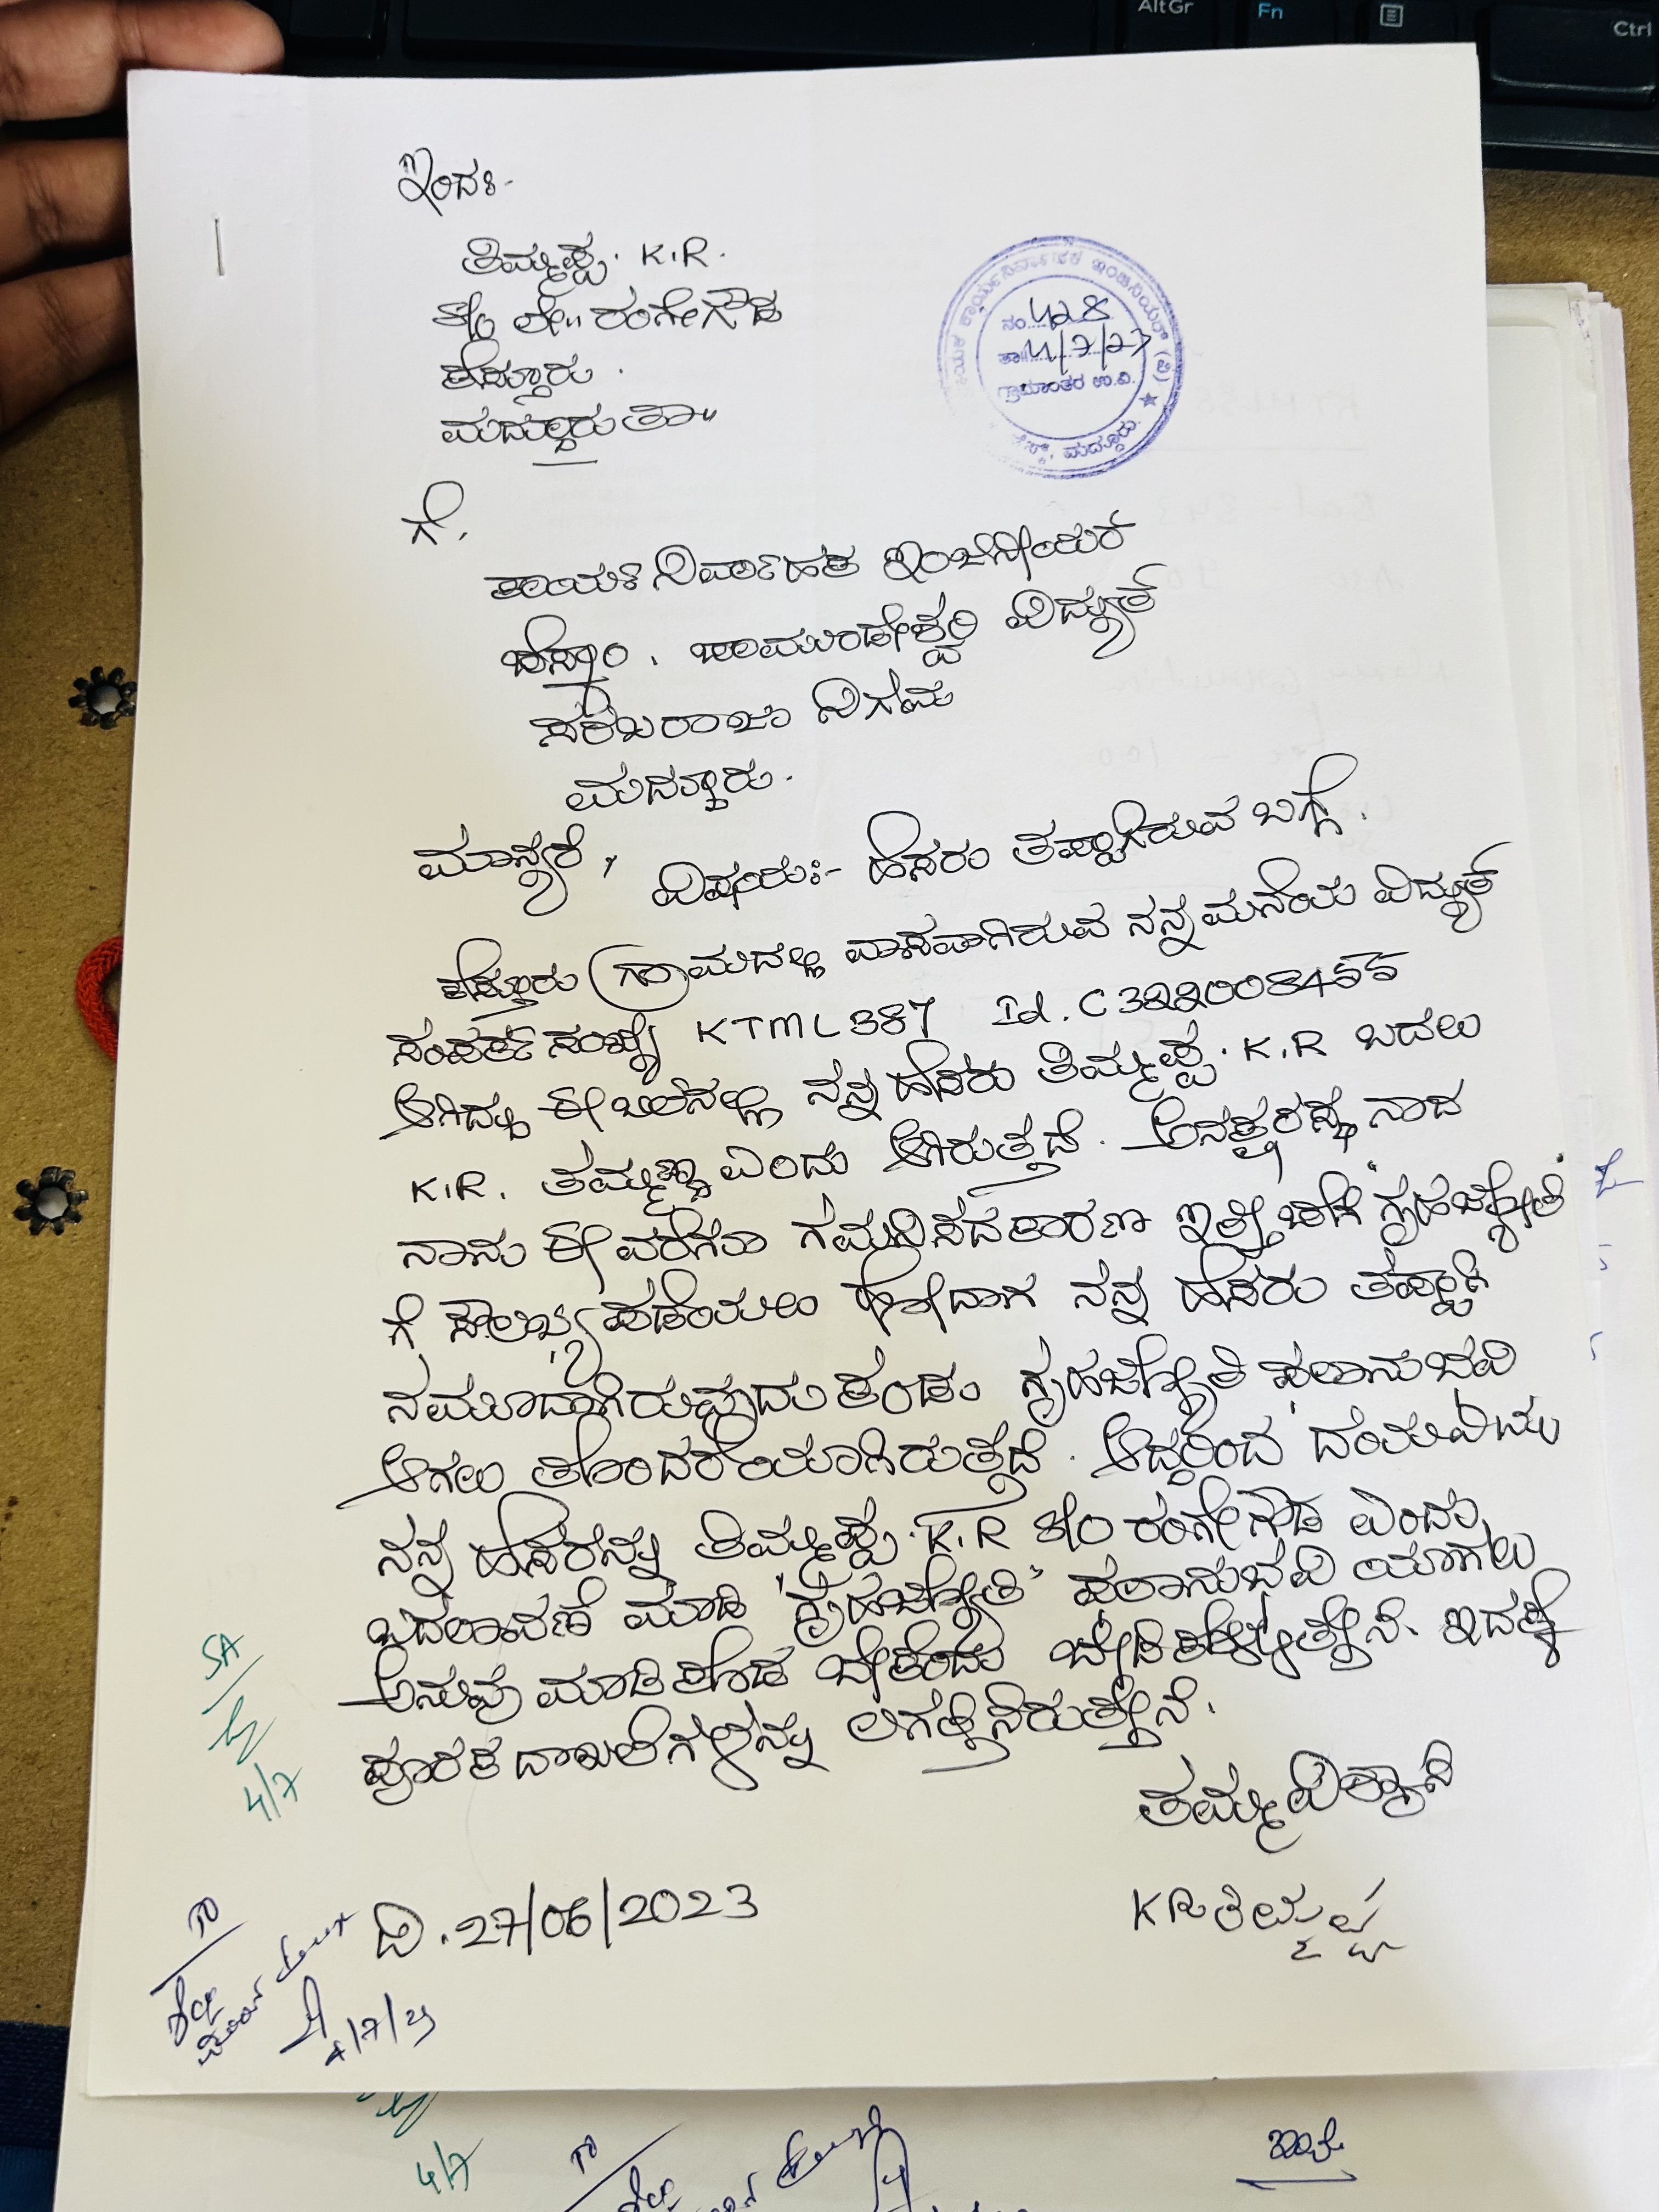 ಇಂದ:-
ತಿಮ್ಮಪ್ಪ. K.R.
S/o ಲೇ॥ ರಂಗೇಗೌಡ
ಕೆಸ್ತೂರು.
ಮದ್ದೂರು ತಾ॥
ಗೆ.
ಕಾರ್ಯನಿರ್ವಾಹಕ ಇಂಜಿನೀಯರ್
ಚೆಸ್ಕಾಂ. ಚಾಮುಂಡೇಶ್ವರಿ ವಿದ್ಯುತ್
ಸರಬರಾಜು ನಿಗಮ
ಮದ್ದೂರು.
ಮಾನ್ಯರೆ,
ವಿಷಯ:- ಹೆಸರು ತಪ್ಪಾಗಿರುವ ಬಗ್ಗೆ.
ಕೆಸ್ತೂರು ಗ್ರಾಮದಲ್ಲಿ ವಾಸವಾಗಿರುವ ನನ್ನ ಮನೆಯ ವಿದ್ಯುತ್
ಸಂಪರ್ಕ ಸಂಖ್ಯೆ KTML387 Id. C3822008455
ಆಗಿದ್ದು ಈ ಬಿಲಿನಲ್ಲಿ ನನ್ನ ಹೆಸರು ತಿಮ್ಮಪ್ಪ. K.R ಬದಲು
K.R. ತಮ್ಮಣ್ಣ ಎಂದು ಆಗಿರುತ್ತದೆ. ಅನಕ್ಷರಸ್ಥನಾದ
ನಾನು ಈವರೆಗೂ ಗಮನಿಸದ ಕಾರಣ ಇತ್ತೀಚೆಗೆ ಗೃಹಜ್ಯೋತಿ
ಗೆ ಸೌಲಭ್ಯ ಪಡೆಯಲು ಹೋದಾಗ ನನ್ನ ಹೆಸರು ತಪ್ಪಾಗಿ
ನಮೂದಾಗಿರುವುದು ಕಂಡು ಗೃಹಜ್ಯೋತಿ ಫಲಾನುಭವಿ
ಆಗಲು ತೊಂದರೆಯಾಗಿರುತ್ತದೆ. ಆದ್ದರಿಂದ ದಯವಿಟ್ಟು
ನನ್ನ ಹೆಸರನ್ನು ತಿಮ್ಮಪ್ಪ. K.R S/o ರಂಗೇಗೌಡ ಎಂದು
ಬದಲಾವಣೆ ಮಾಡಿ 'ಗೃಹಜ್ಯೋತಿ' ಫಲಾನುಭವಿ ಯಾಗಲು
ಅನುವು ಮಾಡಿಕೊಡ ಬೇಕೆಂದು ಬೇಡಿಕೊಳ್ಳುತ್ತೇನೆ. ಇದಕ್ಕೆ
ಪೂರಕ ದಾಖಲೆಗಳನ್ನು ಲಗತ್ತಿಸಿರುತ್ತೇನೆ.
ತಮ್ಮ ವಿಶ್ವಾಸಿ
KR ತಿಮ್ಮಪ್ಪ
ದಿ. 27/06/2023
SA
4/7
4/7/23
ನಂ 428
ತಾ॥ 4/7/23
ಗ್ರಾಮಾಂತರ ಉ.ವಿ.
ಕಾರ್ಯನಿರ್ವಾಹಕ ಇಂಜಿನಿಯರ್ (ವಿ) ★
ಮದ್ದೂರು.
4/7
AltGr
Fn
Ctrl